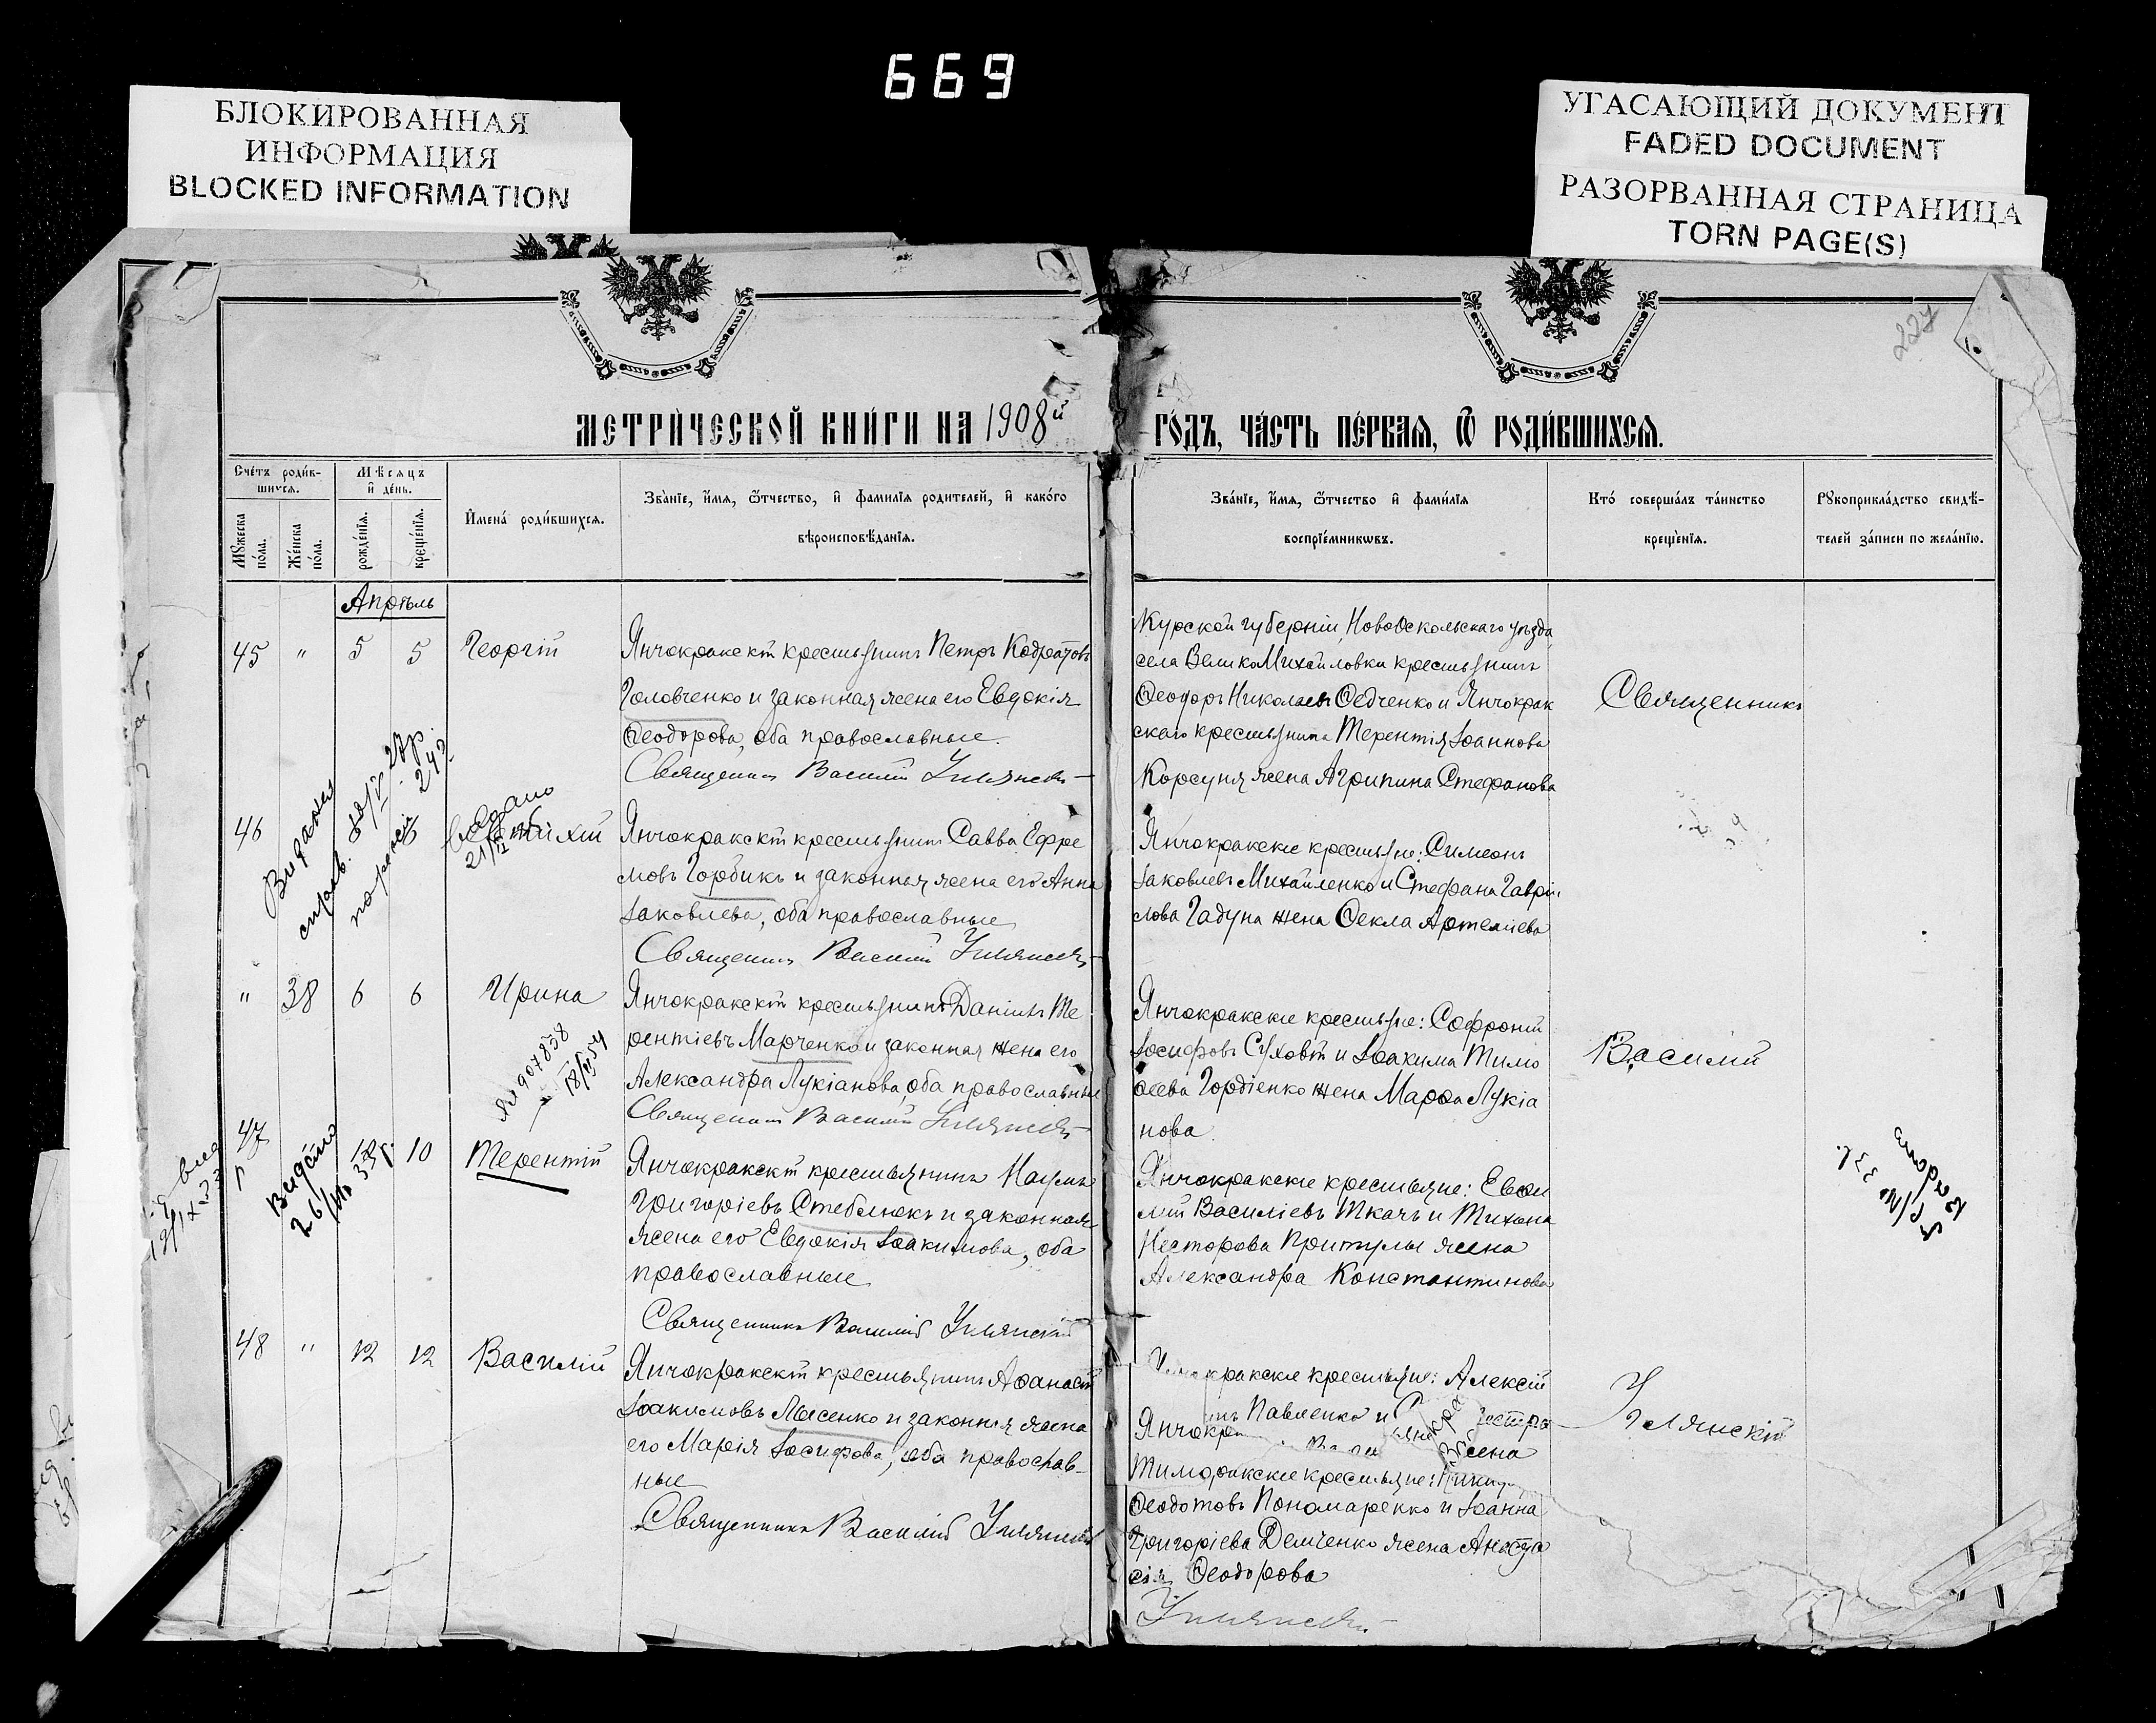 669
БЛОКИРОВАННАЯ
ИНФОРМАЦИЯ
BLOCKED INFORMATION
УГАСАЮЩИЙ ДОКУМЕНТ
FADED DOCUMENT
РАЗОРВАННАЯ СТРАНИЦА
TORN PAGE(S)
227
МЕТРИ́ЧЕСКОЙ КНИ́ГИ НА 1908й ГО́ДЪ, ЧА́СТЬ ПЕ́РВАЯ, Ѿ РОДИ́ВШИХСЯ.
Сче́тъ роди́в-
шихся.
Мѣсяцъ
и҆ де́нь.
Мꙋжеска
по́ла.
Же́нска
по́ла.
рожде́нїѧ.
креще́нїѧ.
И҆мена́ роди́вшихсѧ.
Зва́нїе, и҆́мѧ, ѻ҆́тчество, и҆ фами́лїѧ родителей, и҆ како́гѡ
вѣроисповѣ́данїѧ.
Зва́нїе, и҆́мѧ, ѻ҆́тчество и҆ фами́лїѧ
воспрїе́мникѡвъ.
Кто́ соверша́лъ та́инство
креще́нїѧ.
Рꙋкоприкла́дство свидѣ́-
телей за́писи по жела́нїю.
Апрѣль
45 " 5 5 Георгій
Янчокракскій крестьянинъ Петръ Кодратовъ
Головченко и законная жена его Евдокія
Ѳеодорова, оба православные.
Священникъ Василій Улянскій
Курской губерніи, НовоОскольскаго уѣзда,
села ВеликоМихайловки крестьянинъ
Ѳеодоръ Николаевъ Ѳедченко и Янчокрак
скаго крестьянина Терентія Іоаннова
Корсуня жена Агрипина Стефанова
Священникъ
46
Янчокракскій крестьянинъ Савва Ефре
мовъ Горбикъ и законная жена его Анна
Іаковлева, оба православные
Священникъ Василій Улянскій
Янчокракскіе крестьяне: Симеонъ
Іаковлевъ Михайленко и Стефана Гаврі
лова Гадуна жена Ѳекла Артеміева
" 38 6 6 Ирина
Янчокракскій крестьянинъ Даніилъ Те
рентіевъ Марченко и законная жена его
Александра Лукіанова, оба православные
Священникъ Василій Улянскій
Янчокракскіе крестьяне: Софроній
Іосифовъ Суховій и Іоакима Тимо
ѳеева Гордіенко жена Марѳа Лукіа
нова
Василій
47 10 Терентій
Янчокракскій крестьянинъ Наумъ
Григоріевъ Стеблюкъ и законная
жена его Евдокія Іоакимова, оба
православные
Священникъ Василій Улянскій
Янчокракскіе крестьяне: Евѳи
мій Василіевъ Ткачъ и Тихона
Несторова Притулы жена
Александра Константинова
48 " 12 12 Василій
Янчокракскій крестьянинъ Аѳанасій
Іоакимовъ Лысенко и законная жена
его Марія Іосифова, оба православ-
ные
Священникъ Василій Улянскій
кракскіе крестьяне: Алексій
Павленко и
Янчокр
жена
кракскіе крестьяне:
Ѳеодотовъ Пономаренко и Іоанна
Григоріева Демченко жена Анаста
сія Ѳеодорова
Улянскій
Улянскій